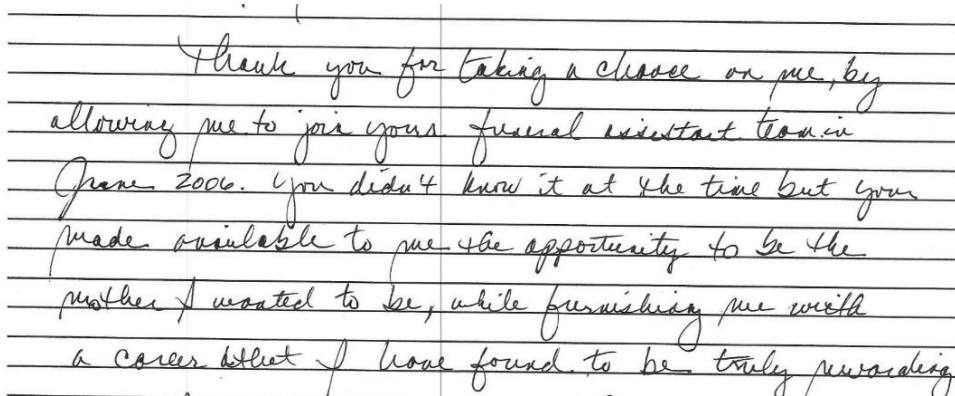 Thank you for taking a chance on me, by
allowing me to join your funeral assistant team in
June 2006. You didn't know it at the time but you
made available to me the opportunity to be the
mother I wanted to be, while furnishing me with
a career that I have found to be truly rewarding